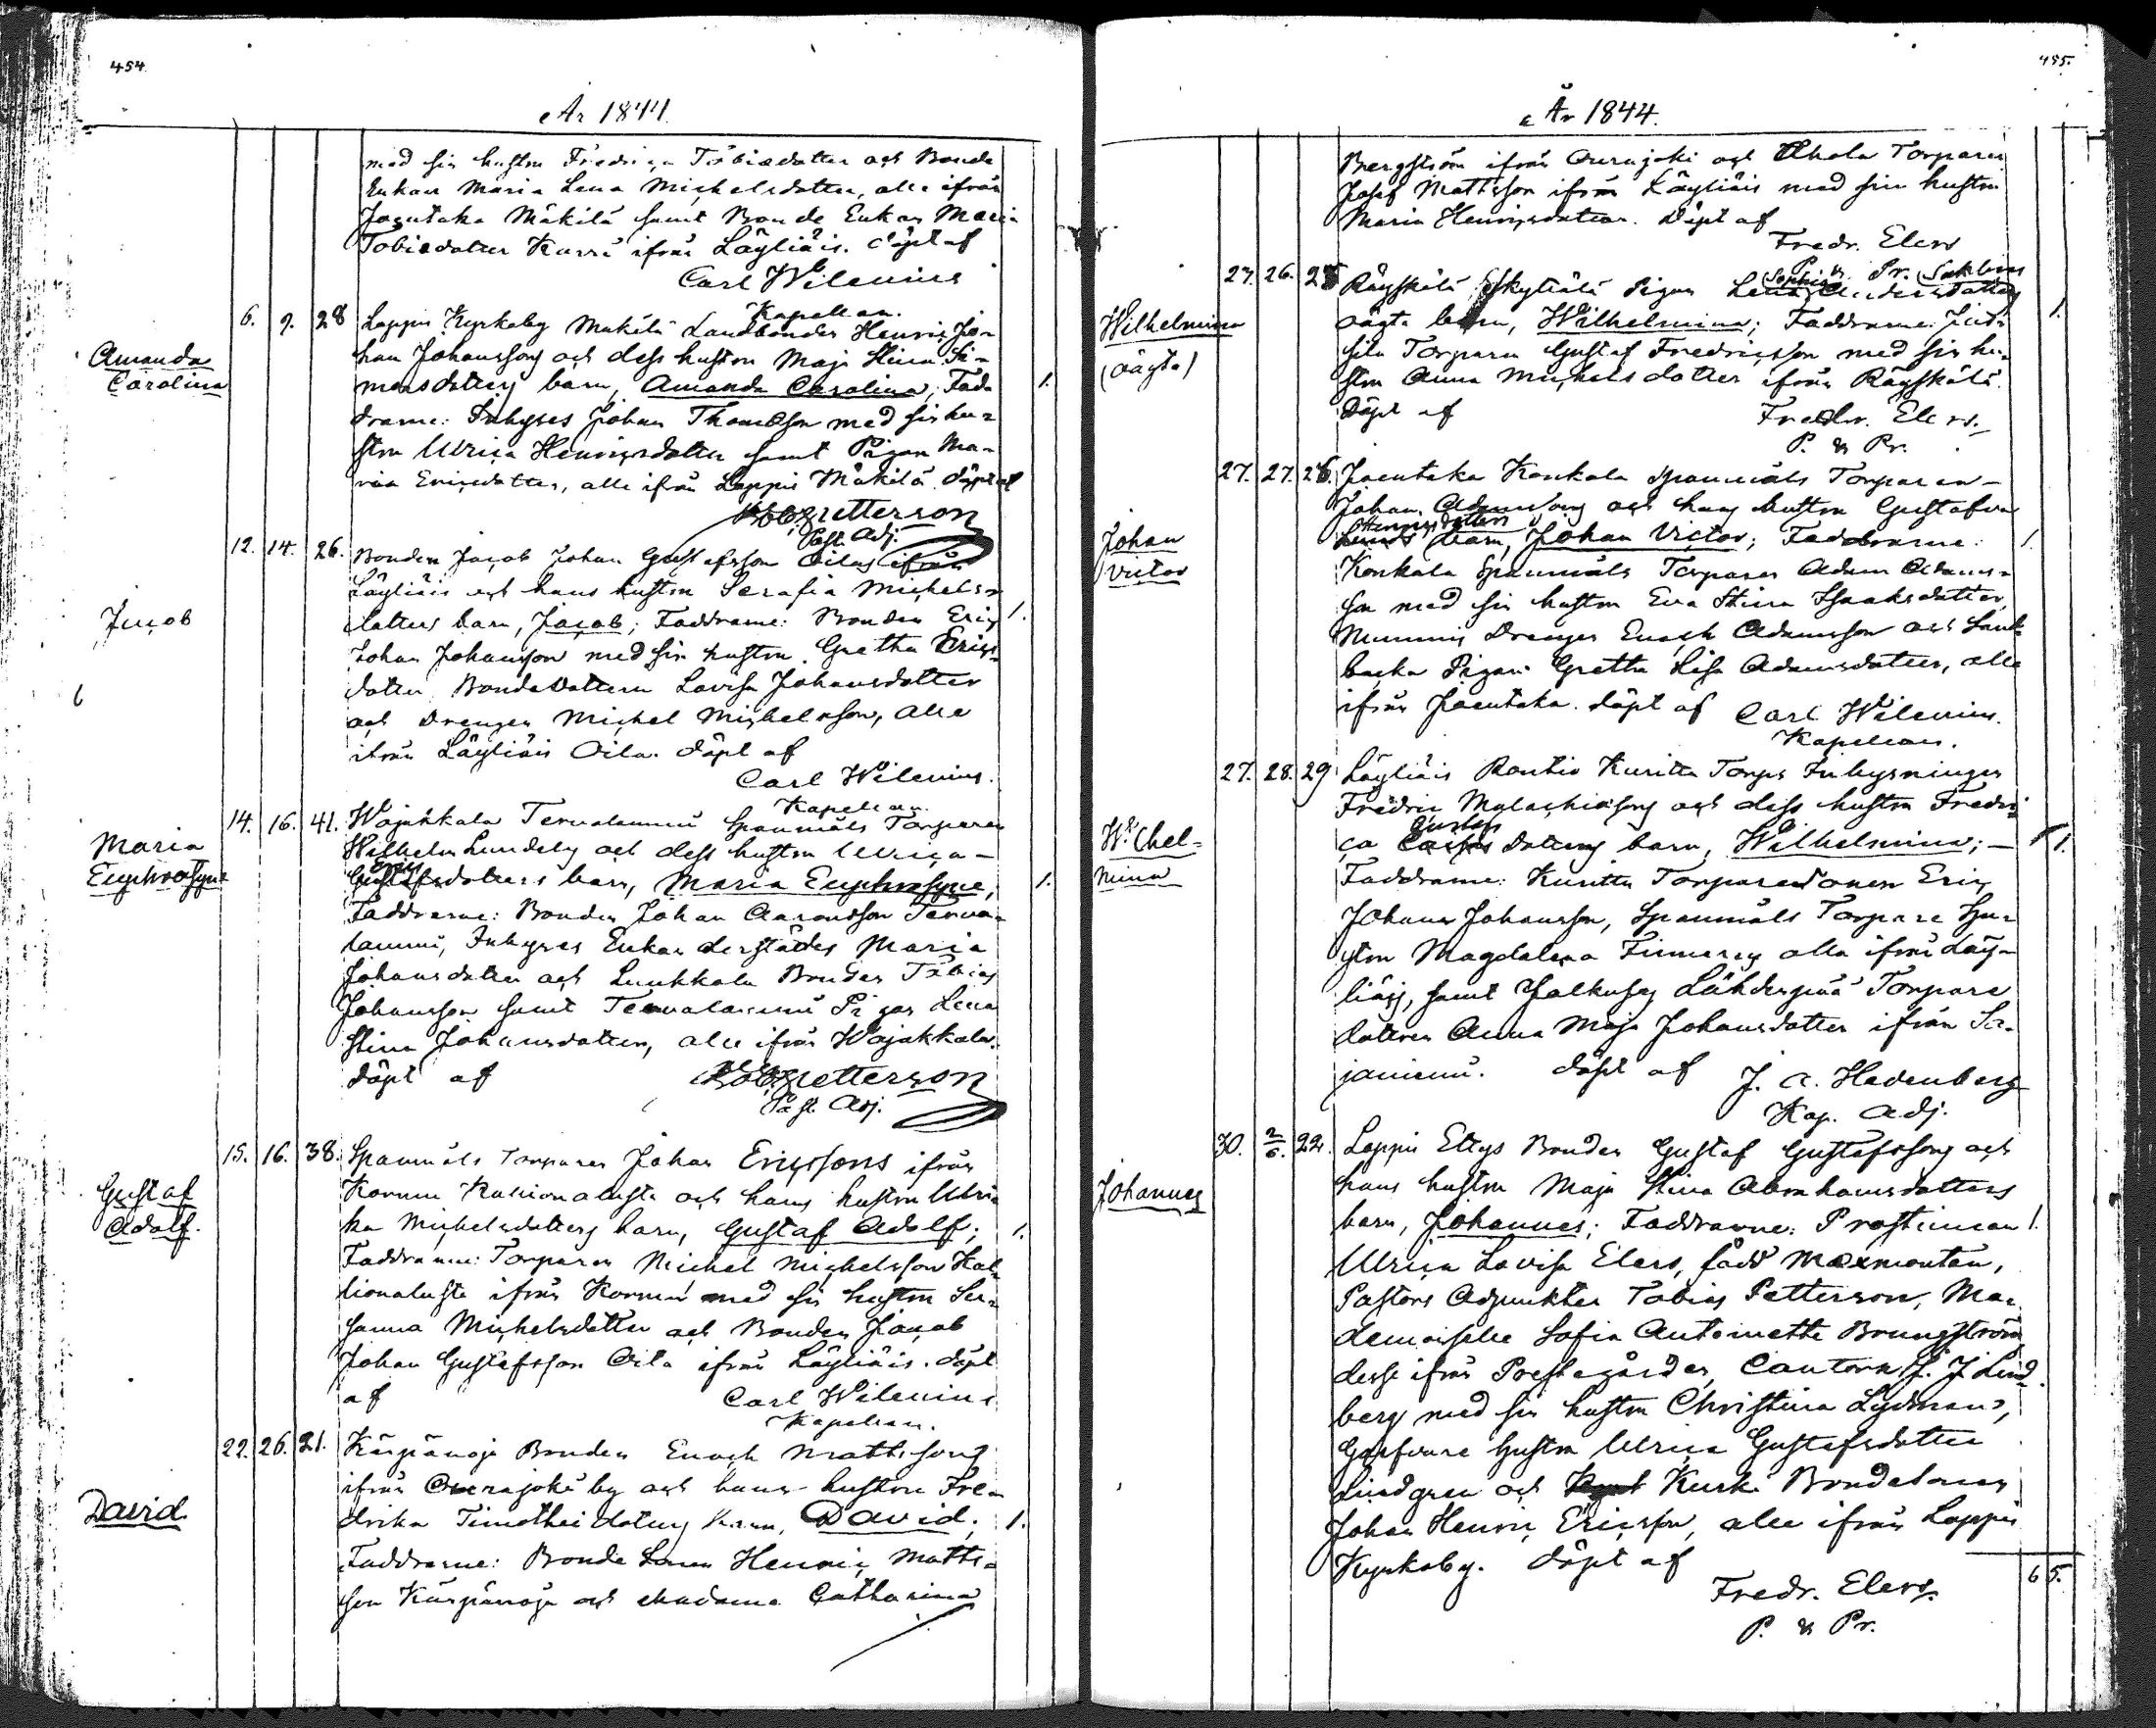 454.
År 1844.
med sin hustru Fredrica Tobiædotter och Bonde
Enkan Maria Lena Michelsdotter, alle ifrån
Jaentaka Mäkilä samt Bonde Enkan Maria
Tobiædotter Kurri ifrån Läyliäis. döpt af
Carl Wilenius
Kapellan.
Amanda
Carolina
6. 9. 28 Loppis Kyrkoby Mäkilä Landbonden Henric Jo-
han Johanssons och dess hustru Maja Stina Si-
monsdotters barn, Amanda Carolina; Fad- 1.
drarne: Inhyses Johan Thomasson med sin hu-
stru Ulrica Henricsdotter samt Pigan Ma-
ria Ericsdotter, alle ifrån Loppis Mäkilä. döpt af
Petterson
Past. Adj.
Jacob
12. 14. 26. Bonden Jacob Johan Gustafsson Oilas ifrån
Läyliäis och hans hustru Serafia Michels-
dotters barn, Jacob; Faddrarne: Bonden Eric 1.
Johan Johansson med sin hustru Gretha Erics-
dotter, Bondedottern Lovisa Johansdotter
och Drengen Michel Michelsson, alle
ifrån Läyliäis Oila. döpt af
Carl Wilenius.
Kapellan.
Maria
Euphrosyne
14. 16. 41. Wojakkala Tervalammi Spanmåls Torparen
Wilhelm Lundelg och dess hustru Ulrica
Erics
Gustafsdotters barn, Maria Euphrosyne; 1.
Faddrarne: Bonden Johan Aaronsson Terva-
lammi, Inhyses Enkan derstädes Maria
Johansdotter och Luukkala Bonden Tobias
Johansson samt Tervalammi Pigan Lena
Stina Johansdotter, alle ifrån Wojakkala.
döpt af Petterson
Past. Adj.
Gustaf
Adolf.
15. 16. 38. Spanmåls Torparen Johan Ericssons ifrån
Kormu Kalionalusta och hans hustru Ulri-
ka Michelsdotters barn, Gustaf Adolf; 1.
Faddrarne: Torparen Michel Michelsson Kal-
lionalusta ifrån Kormu med sin hustru Su-
sanna Michelsdotter och Bonden Jacob
Johan Gustafsson Oila ifrån Läyliäis. döpt
af Carl Wilenius
Kapellan.
David.
22. 26. 21. Kärpänoja Bonden Enoch Mattssons
ifrån Ourajoki by och hans hustru Fre-
drika Timothei dotters barn, David; 1.
Faddrarne: Bonde Sonen Henric Matts-
son Kärpänoja och Madame Catharina
455.
År 1844.
Bergström ifrån Ourajoki och Torparen
Josef Mattsson ifrån Läyliäis med sin hustru
Maria Henricsdotter. döpt af
Fredr. Elers
P. & Pr.
Wilhelmina
(oägta)
27. 26. 25 Räyskälä Eskylälä Pigan Lena Sophia Andersdotter
oägta barn, Wilhelmina; Faddrarne: 1.
Torparen Gustaf Fredricsson med sin hu-
stru Anna Michelsdotter ifrån Räyskälä.
döpt af Fredr. Elers.
P. & Pr.
Johan
Victor
27. 27. 26. Jaentaka Konkala Spanmåls Torparen
Johan Adamssons och hans hustru Gustafva
Henricsdotters
barn, Johan Victor; Faddrarne: 1.
Konkala Spanmåls Torparen Adam Adams-
son med sin hustru Eva Stina Isaaksdotter,
Nummis Drengen Enoch Adamsson och Sand-
backa Pigan Gretha Lisa Adamsdotter, alle
ifrån Jaentaka. döpt af Carl Wilenius.
Kapellan.
Wilhel-
mina
27. 28. 29 Läyliäis Rontio Kuritta Torps Inhysningen
Fredric Malachiassons och dess hustru Fredri-
Gustafs
ca dotters barn, Wilhelmina; 1.
Faddrarne: Kuritta Torparesonen Eric
Johan Johansson, Spanmåls Torpare Hu-
strun Magdalena alla ifrån Läy-
liäis, samt Jalkuse Lähdenpää Torpare
dottren Anna Maja Johansdotter ifrån Sa-
janiemi. döpt af J. A. Hedenberg
Kap. Adj.
Johannes
30. 2/6. 22. Loppis Ellys Bonden Gustaf Gustafssons och
hans hustru Maja Stina Abrahamsdotters
barn, Johannes; Faddrarne: Prostinnan 1.
Ulrica Lovisa Elers, född Maxmontan,
Pastors Adjunkten Tobias Petterson, Ma-
demoiselle Sofia Antoinette Brungström
desse ifrån Prestegården, Cantorn J. J. Lind-
berg med sin hustru Christina Lydman,
Garfvare Hustru Ulrica Gustafsdotter
Lindgren och Kurki Bondesonen
Johan Henric Ericsson, alle ifrån Loppis
Kyrkoby. döpt af
Fredr. Elers.
P. & Pr.
6 5.